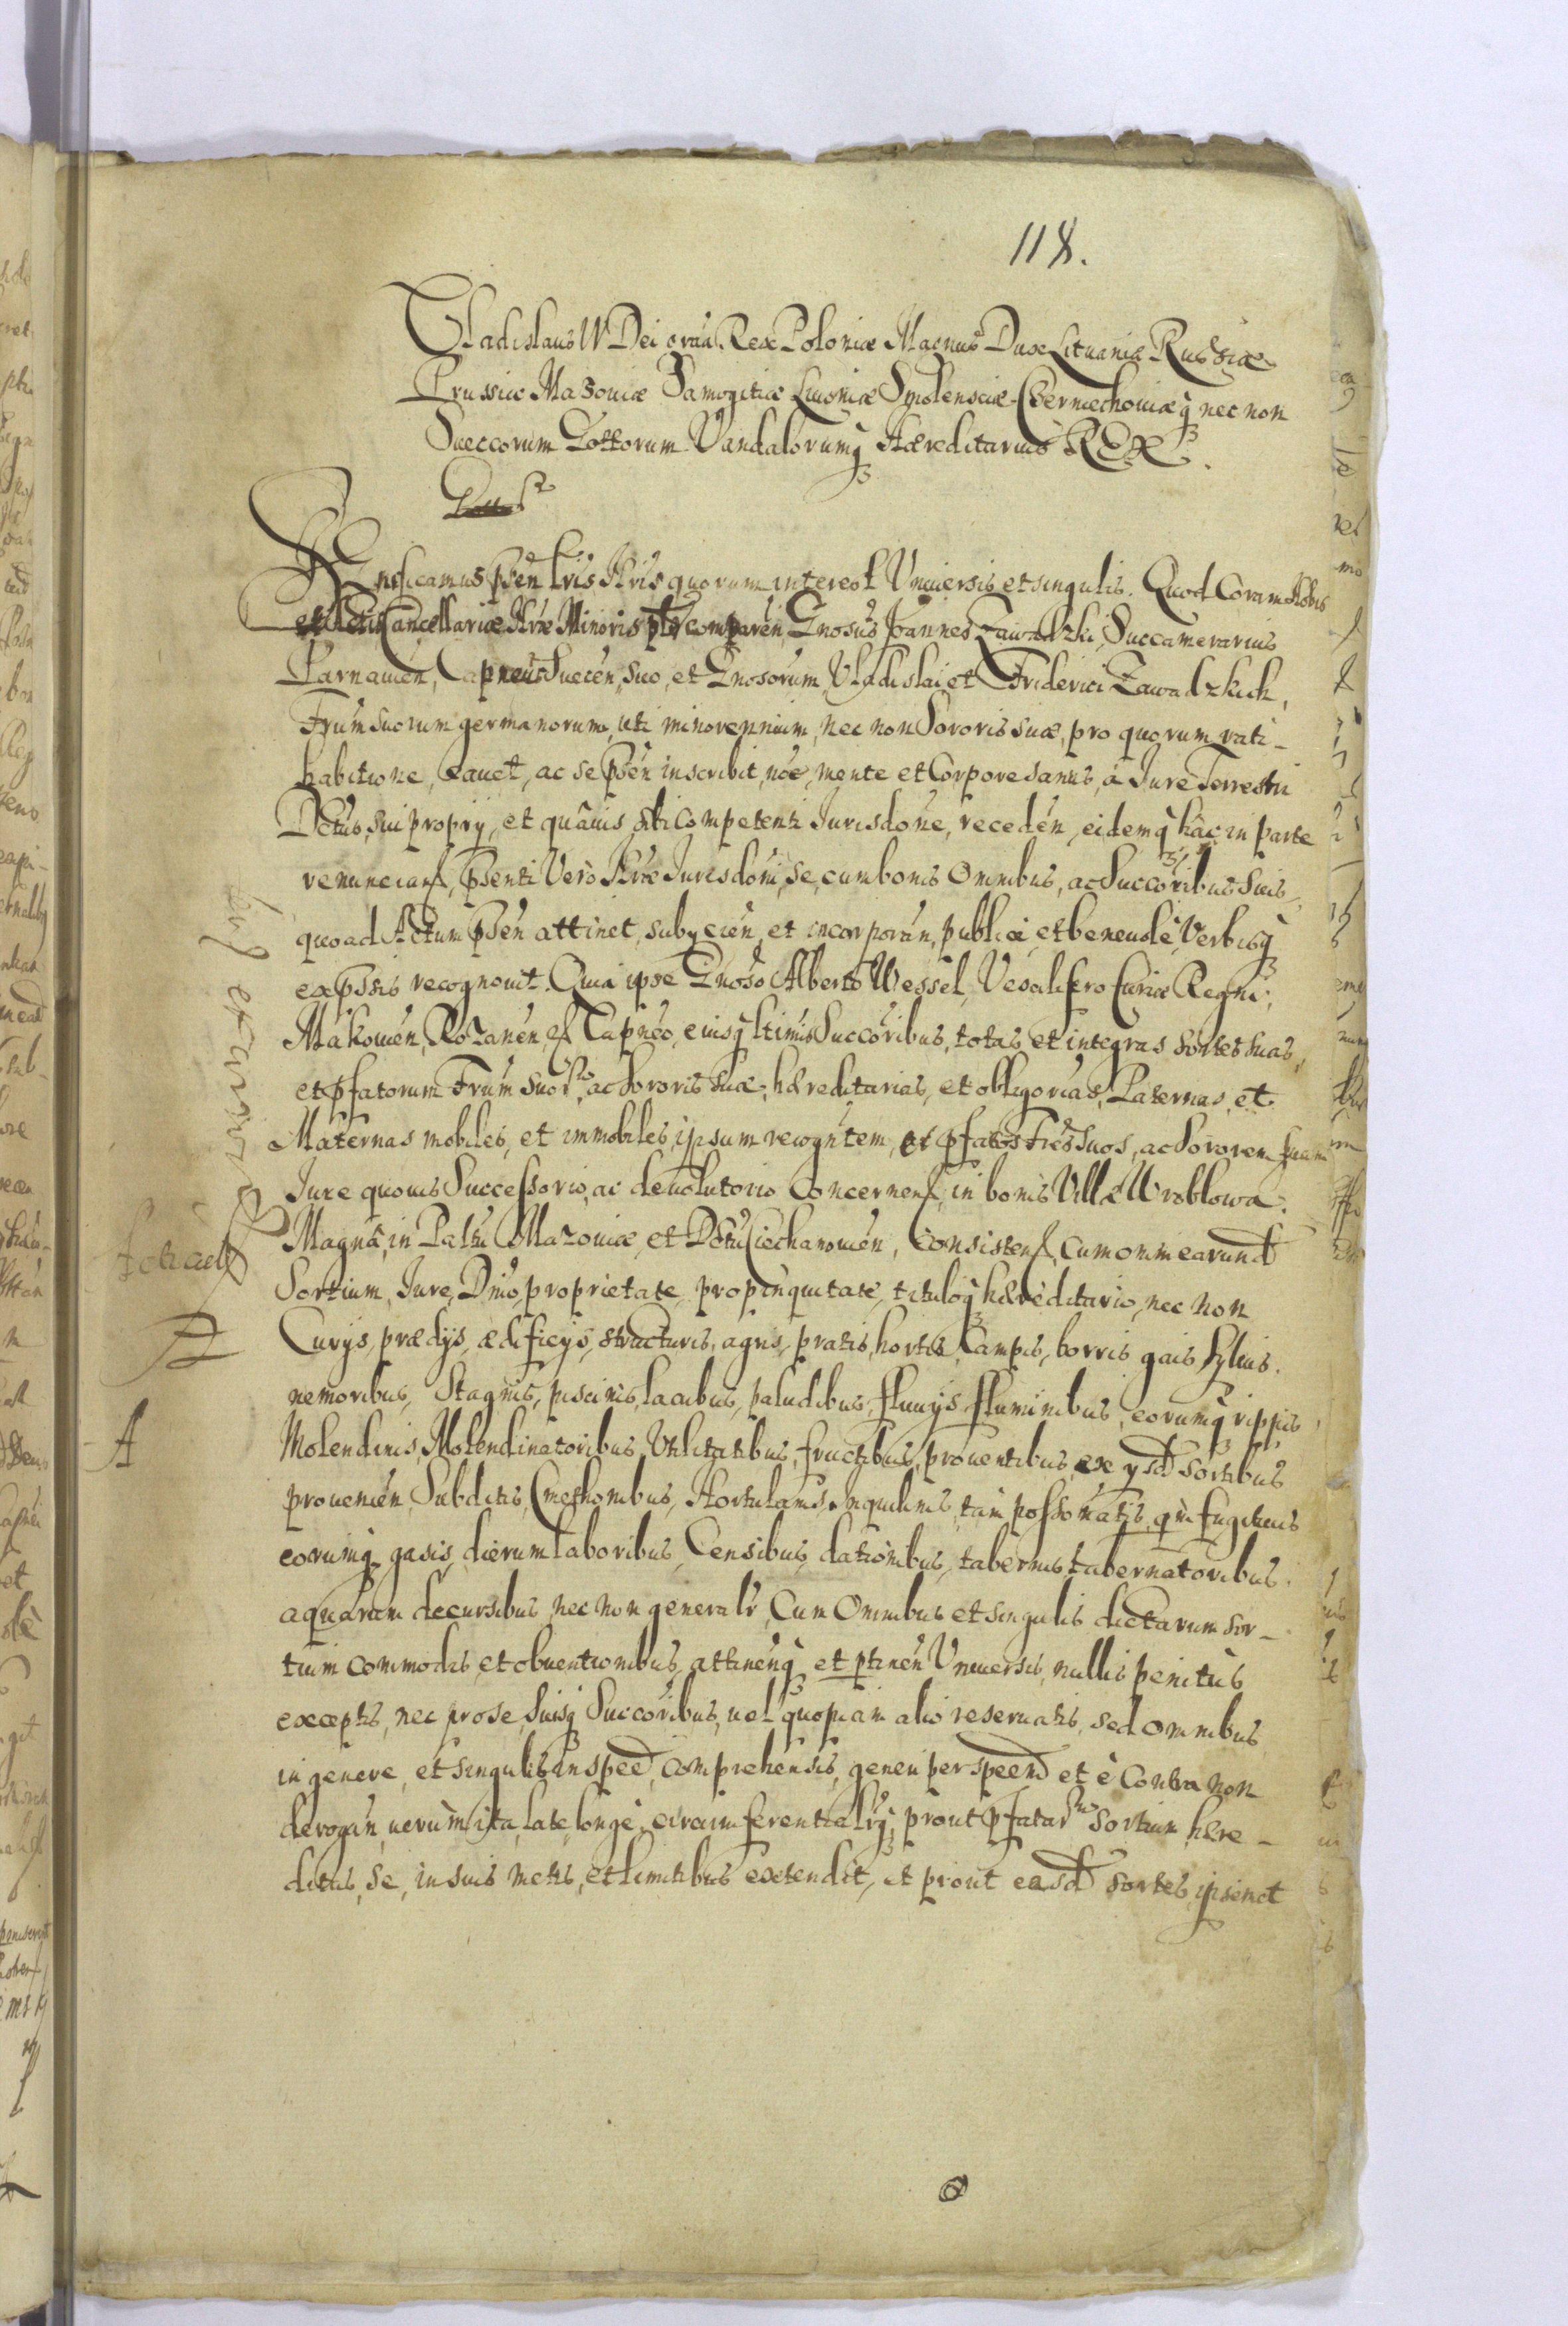 118.
Vladislaus IV Dei gratia Rex Poloniæ Magnus Dux Lituaniæ Russiæ
Prussiæ Mazouiæ Samogitiæ Liuoniæ Smolensciæ Czerniechouiæq nec non
Sueccorum Gottorum Vandalorumq Hæreditarius REX.
Significamus psen Lris Nris quorum interest Vniuersis et singulis. Quod Coram Nobis
et Actis Cancellariæ Nræ Minoris ptr comparen Gnosus Joannes Zawadzki Succamerarius
Parnauien, Capneus Suecen, suo, et Gnosorum Vladislai et Friderici Zawadzkich,
Frum suorum germanorum, uti minorennium, nec non Sororis suæ, pro quorum rati-
habitione, cauet, ac se psen inscribit, noe, mente et Corpore sanus, à Jure Terrestri
Dctus, sui proprij, et quauis sibi competenti Jurisdone, receden, eidemq hâc in parte
renuncian, psenti Verò Nræ Jurisdoni, se, cum bonis Omnibus, ac Succoribus suis,
quoad Actum psen attinet, subycien, et incorporan, publicè et beneuole Verbisq
expssis recognouit. Quia ipse Gnoso Alberto Wessel, Vexilifero Curiæ Regni,
Makouien, Rozanen, et Capneo, eiusq ltimis Succoribus, totas et integras sortes suas,
et pfatorum Frum suor, ac Sororis suæ, hæreditarias, et obligorias, Paternas, et
Maternas mobiles, et immobiles, ipsum recogntem, et pfatos Fres suos, ac Sororem suam
Jure quouis Successorio, ac deuolutorio Concernen, in bonis Villæ Wroblowa
Magna, in Paltu Mazouiæ, et Dctu Ciechanouien, Consisten, Cum omni earund
Sortium, Jure, Dnio, proprietate, propinquitate, tituloq hæreditario, nec non
Curijs, prædijs, ædificijs, structuris, agris, pratis, hortis, Campis, borris, gais, syluis,
nemoribus, Stagnis, piscinis, lacubus, paludibus, fluuijs, fluminibus, eorumq rippis,
Molendinis, Molendinatoribus, Vtilitatibus, fructibus, prouentibus, ex ysd sortibus
prouenien, Subditis, Cmethonibus, Hortulanis, Inquilinis, tam possonatis, qm fugitiuis
eorumq gasis, dierum laboribus, Censibus, dationibus, tabernis, tabernatoribus,
aquarum decursibus, nec non generalr, Cum Omnibus et singulis dictarum sor-
tium commodis et obuentionibus, attinenq et ptinen Vniuersis, nullis penitus
exceptis, nec pro se, suisq Succoribus, uel quopiam alio reseruatis, sed omnibus
in genere, et singulis in specie, comprehensis, genere per speciem et è Contra non
derogan, uerùm ita, late, longè, circumferentialrq, prout pfatar Sortium, hære-
ditas, se, in suis metis, et limitibus extendit, et prout easd sortes, ipsemet
A